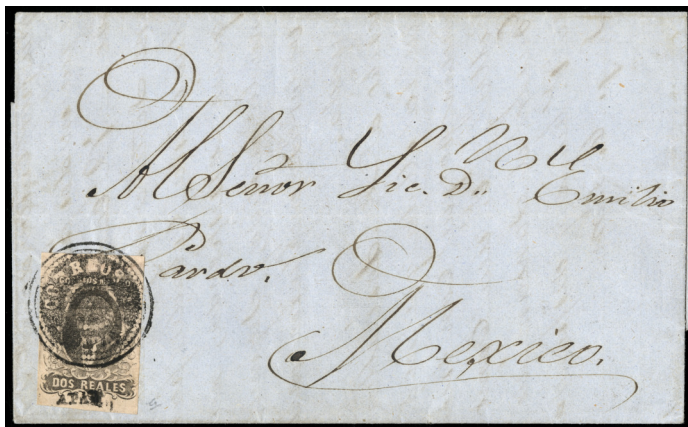 Al Señor Lic. D. Emilio
Pardo.
Mexico.
CORREOS
CORREOS
DOS REALES